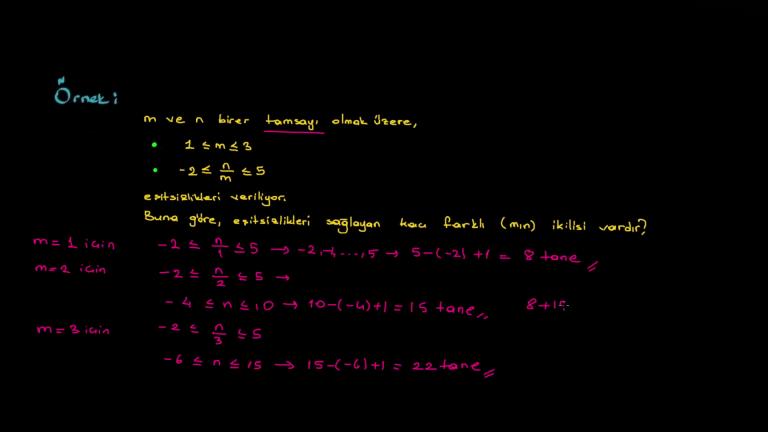 Örnek:
m ve n birer tamsayı olmak üzere,
• 1 ≤ m ≤ 3
• -2 ≤ n/m ≤ 5
eşitsizlikleri veriliyor.
Buna göre, eşitsizlikleri sağlayan kaç farklı (m,n) ikilisi vardır?
m=1 için -2 ≤ n/1 ≤ 5 → -2,-1,...,5 → 5-(-2)+1 = 8 tane
m=2 için -2 ≤ n/2 ≤ 5 →
-4 ≤ n ≤ 10 → 10-(-4)+1 = 15 tane 8+15+
m=3 için -2 ≤ n/3 ≤ 5
-6 ≤ n ≤ 15 → 15-(-6)+1 = 22 tane